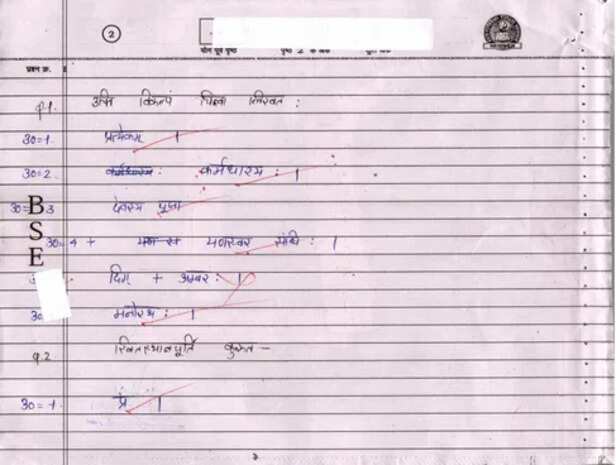 2
पृष्ठ 2 के अंक
प्रश्न क्र.
प्र.1. उचित विकल्पं चित्वा लिखत :
उ०=1. प्रत्येकम् ।
उ०=2. कर्मधारय : कर्मधारय : ।
उ०= 3 देवस्य पूजा
उ०= 4 यणस्वर संधि : ।
दिग् + अम्बर : ।
उ० मनोरथ : ।
प्र.2 रिक्तस्थानपूर्ति कुरुत –
उ०=1. प्र ।
B
S
E